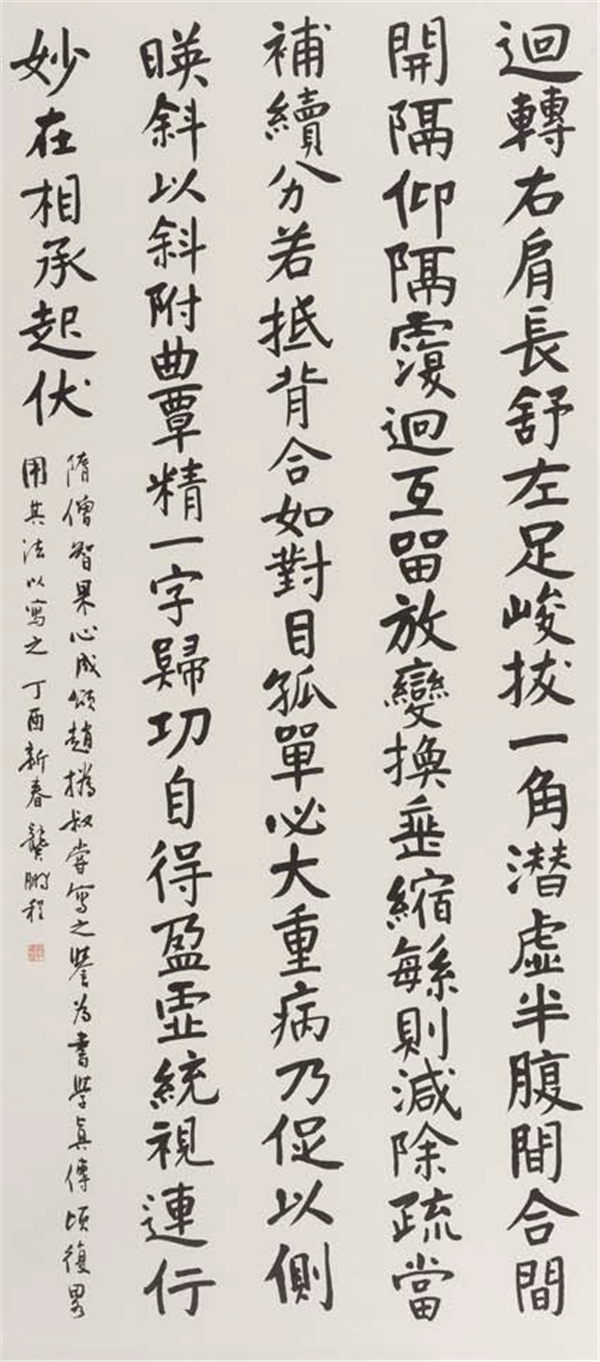 迴轉右肩長舒左足峻拔一角潛虛半腹間合間
開隔仰隔覆迴互留放變換垂縮繁則減除疏當
補續分若抵背合如對目孤單必大重病乃促以側
暎斜以斜附曲覃精一字歸功自得盈虛統視連行
妙在相承起伏
隋僧智果心成頌趙撝叔嘗寫之譽為書學真傳頃復略
用其法以寫之丁酉新春龔鵬程